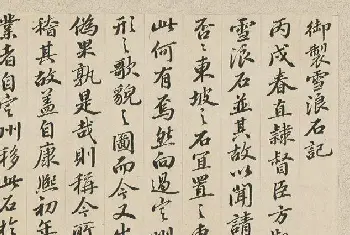 御製雪浪石記
丙戌春直隸督臣方
雪浪石並其故以聞請
否否東坡之石宜置之東
此何有焉然向過定州
形之歌貌之圖而今又出
偽果孰是哉則稱今所
稽其故蓋自康熙初年
業者自定州移此石於